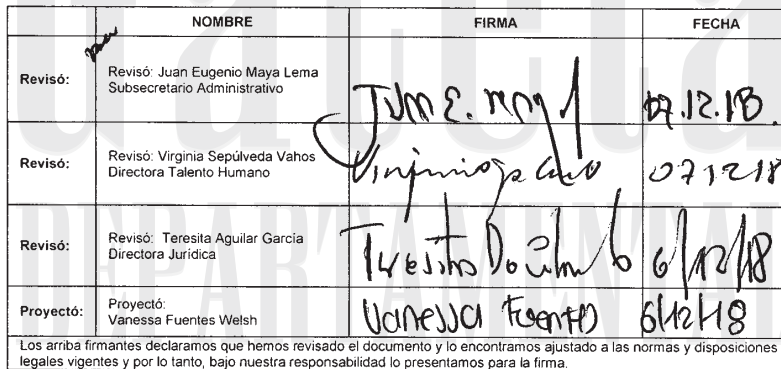 NOMBRE FIRMA FECHA
Revisó: Revisó: Juan Eugenio Maya Lema
Subsecretario Administrativo
Juan E. Maya 07.12.18
Revisó: Revisó: Virginia Sepúlveda Vahos
Directora Talento Humano
Virginia 071218
Revisó: Revisó: Teresita Aguilar García
Directora Jurídica
Teresita 6/12/18
Proyectó: Proyectó:
Vanessa Fuentes Welsh
Vanessa Fuentes 6/12/18
Los arriba firmantes declaramos que hemos revisado el documento y lo encontramos ajustado a las normas y disposiciones
legales vigentes y por lo tanto, bajo nuestra responsabilidad lo presentamos para la firma.
DEPARTAMENTAL